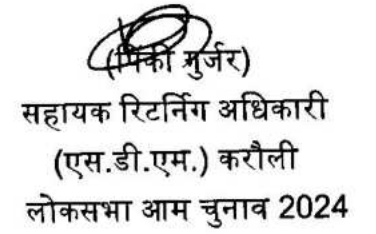 (पिंकी गुर्जर)
सहायक रिटर्निग अधिकारी
(एस.डी.एम.) करौली
लोकसभा आम चुनाव 2024